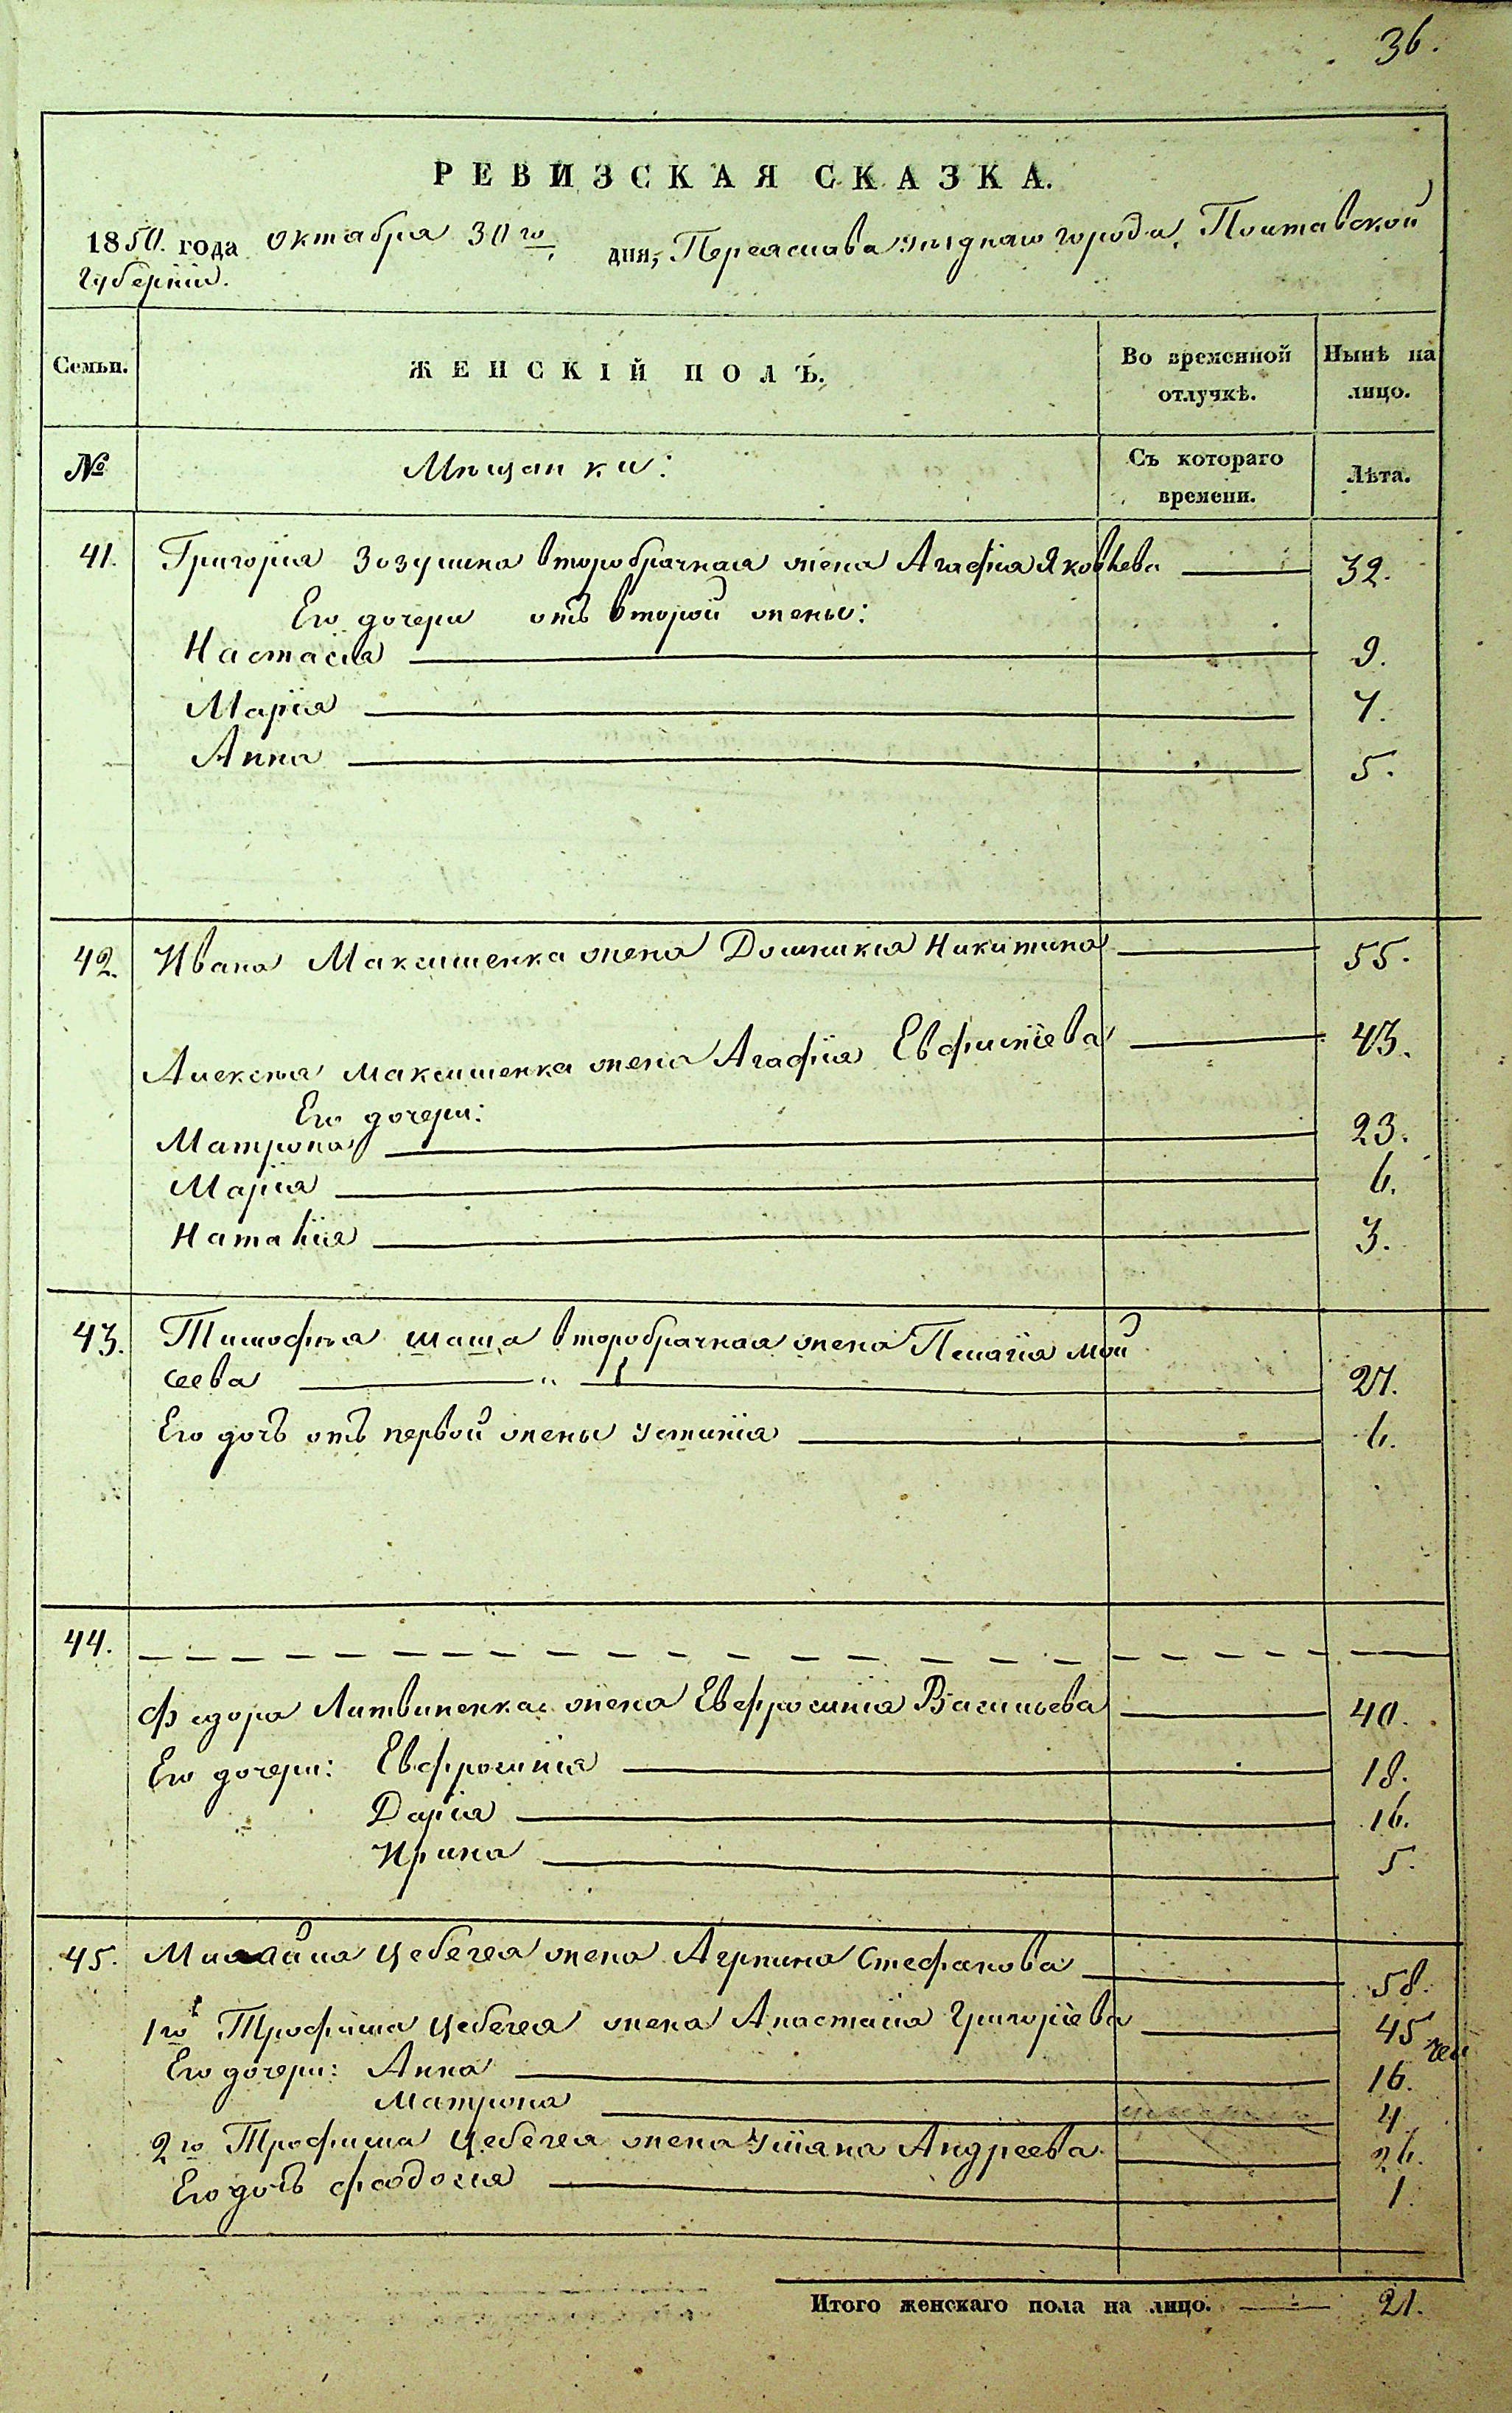 36.
РЕВИЗСКАЯ СКАЗКА.
1850. года октября 30го дня, Переяслава уѣзднаго города, Полтавской
губерніи.
Семьи. ЖЕНСКІЙ ПОЛЪ. Во временной отлучкѣ. Нынѣ на лицо.
№ Мѣщанки: Съ котораго времени. Лѣта.
41. Григорія Зозулина второбрачная жена Агафія Яковлева 32.
Его дочери отъ второй жены:
Настасія 9.
Марія 7.
Анна 5.
42. Ивана Максименка жена Домникія Никитина 55.
Алексѣя Максименка жена Агафія Евфиміева 43.
Его дочери:
Матрона 23.
Марія 6.
Наталія 3.
43. Тимофѣя Шаша второбрачная жена Пелагія Мой
сеева 27.
Его дочь отъ первой жены Устинія 6.
44.
Федора Литвиненка жена Евфросинія Васильева 40.
Его дочери: Евфросинія 18.
Дарія 16.
Ирина 5.
45. Михайла Цебегея жена Агрпина Стефанова 58.
1го Трофима Цебегея жена Анастасія Григоріева 45
Его дочери: Анна 16.
Матрона 4
2го Трофима Цебегея жена Уліяна Андреева 26.
Его дочь Феодосія 1.
Итого женскаго пола на лицо. 21.